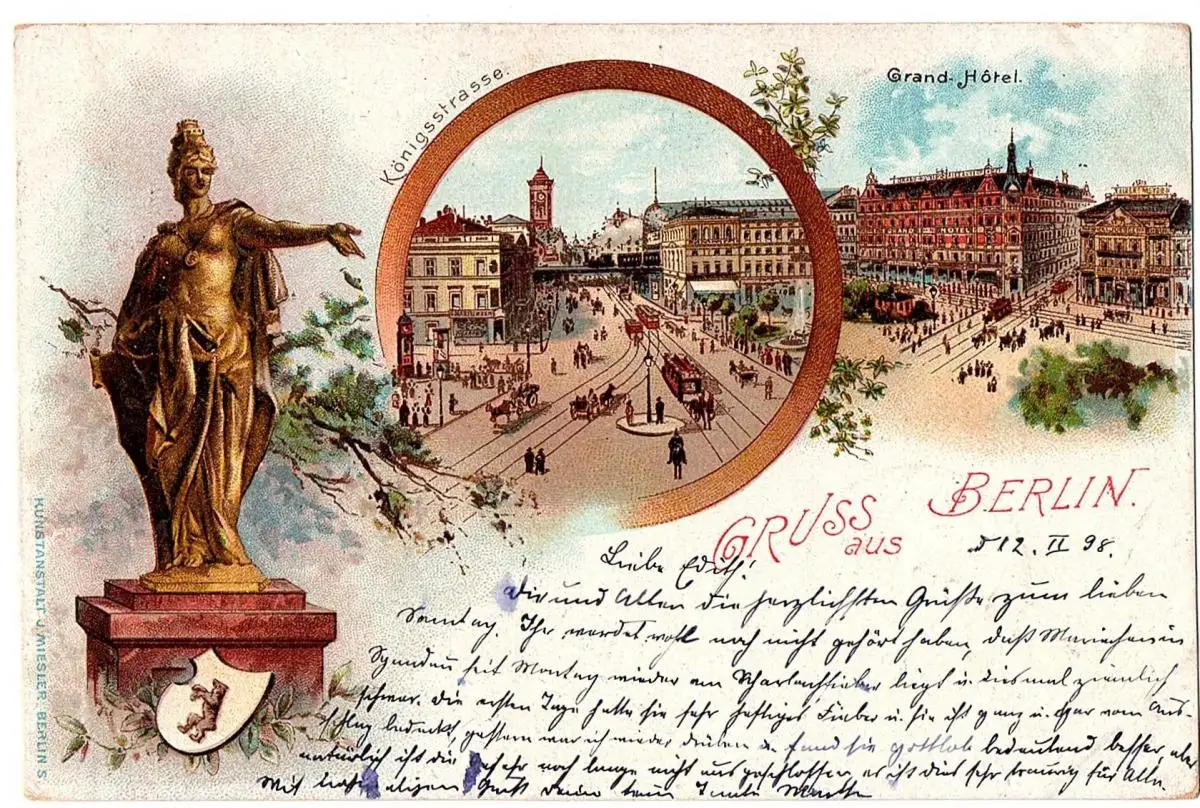 Königsstrasse.
Grand-Hôtel.
GRAND HOTEL
GRUSS aus BERLIN.
d 12. II 98.
Liebe Edith!
Dir und Allen die herzlichsten Grüße zum lieben
Sonntag. Ihr werdet wohl noch nicht gehört haben, daß Mariechen in
Spandau seit Montag wieder am Scharlachfieber liegt u. diesmal ziemlich
schwer. Die ersten Tage hatte sie sehr heftiges Fieber u. sie ist ganz u. gar vom Aus-
schlag bedeckt, gestern war ich wieder drüben u. fand sie gottlob bedeutend besser, aber
natürlich ist die Gefahr noch lange nicht ausgeschlossen, es ist dies sehr traurig für Alle.
Mit Gruß Deine Tante
KUNSTANSTALT J. MIESLER. BERLIN S.